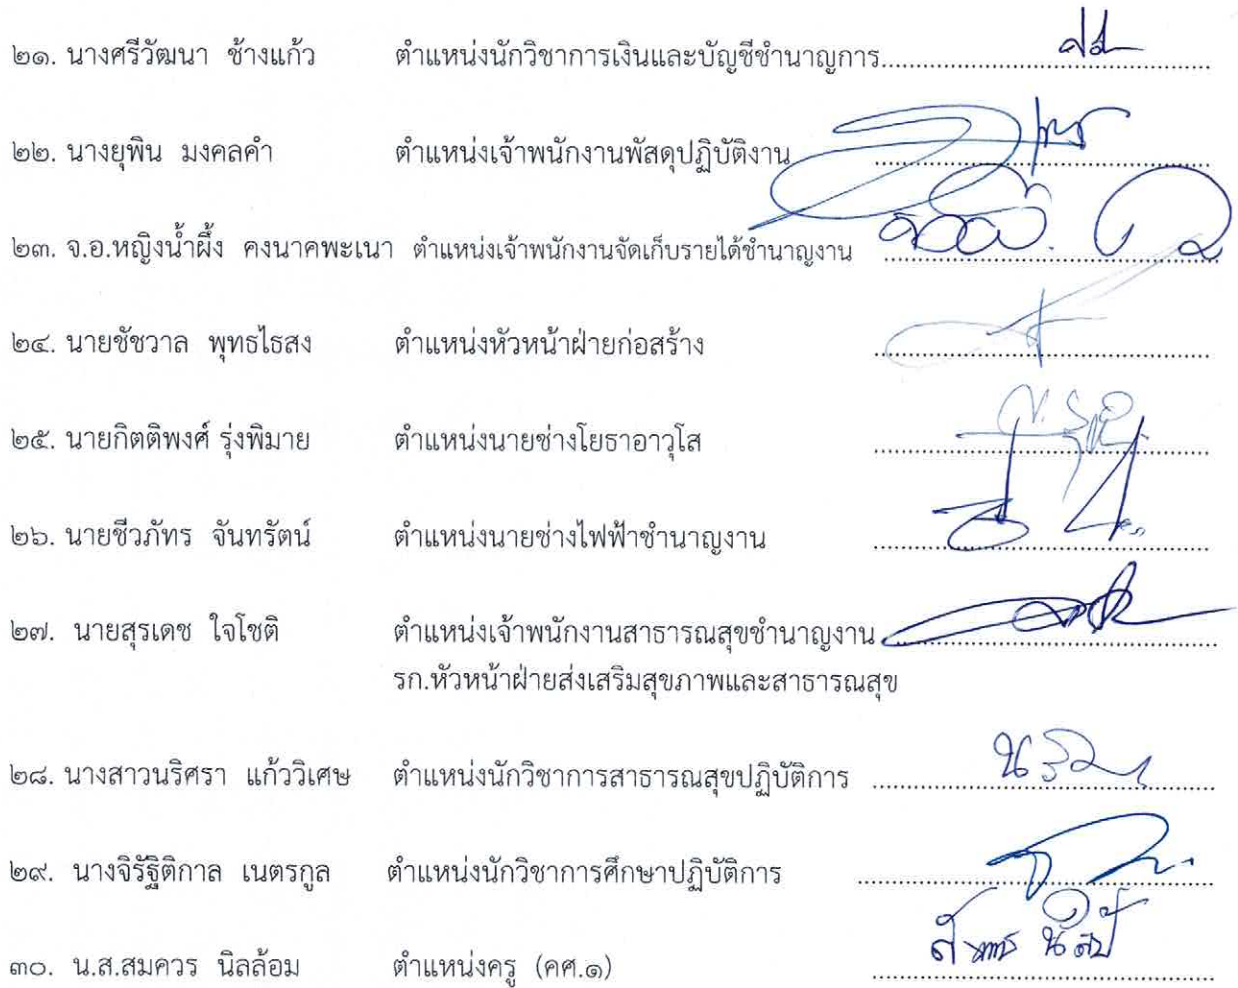 ๒๑. นางศรีวัฒนา ช้างแก้ว ตำแหน่งนักวิชาการเงินและบัญชีชำนาญการ
๒๒. นางยุพิน มงคลคำ ตำแหน่งเจ้าพนักงานพัสดุปฏิบัติงาน
๒๓. จ.อ.หญิงน้ำผึ้ง คงนาคพะเนา ตำแหน่งเจ้าพนักงานจัดเก็บรายได้ชำนาญงาน
๒๔. นายชัชวาล พุทธไธสง ตำแหน่งหัวหน้าฝ่ายก่อสร้าง
๒๕. นายกิตติพงศ์ รุ่งพิมาย ตำแหน่งนายช่างโยธาอาวุโส
๒๖. นายชีวภัทร จันทรัตน์ ตำแหน่งนายช่างไฟฟ้าชำนาญงาน
๒๗. นายสุรเดช ใจโชติ ตำแหน่งเจ้าพนักงานสาธารณสุขชำนาญงาน
รก.หัวหน้าฝ่ายส่งเสริมสุขภาพและสาธารณสุข
๒๘. นางสาวนริศรา แก้ววิเศษ ตำแหน่งนักวิชาการสาธารณสุขปฏิบัติการ
๒๙. นางจิรัฐิติกาล เนตรกูล ตำแหน่งนักวิชาการศึกษาปฏิบัติการ
๓๐. น.ส.สมควร นิลล้อม ตำแหน่งครู (คศ.๑)